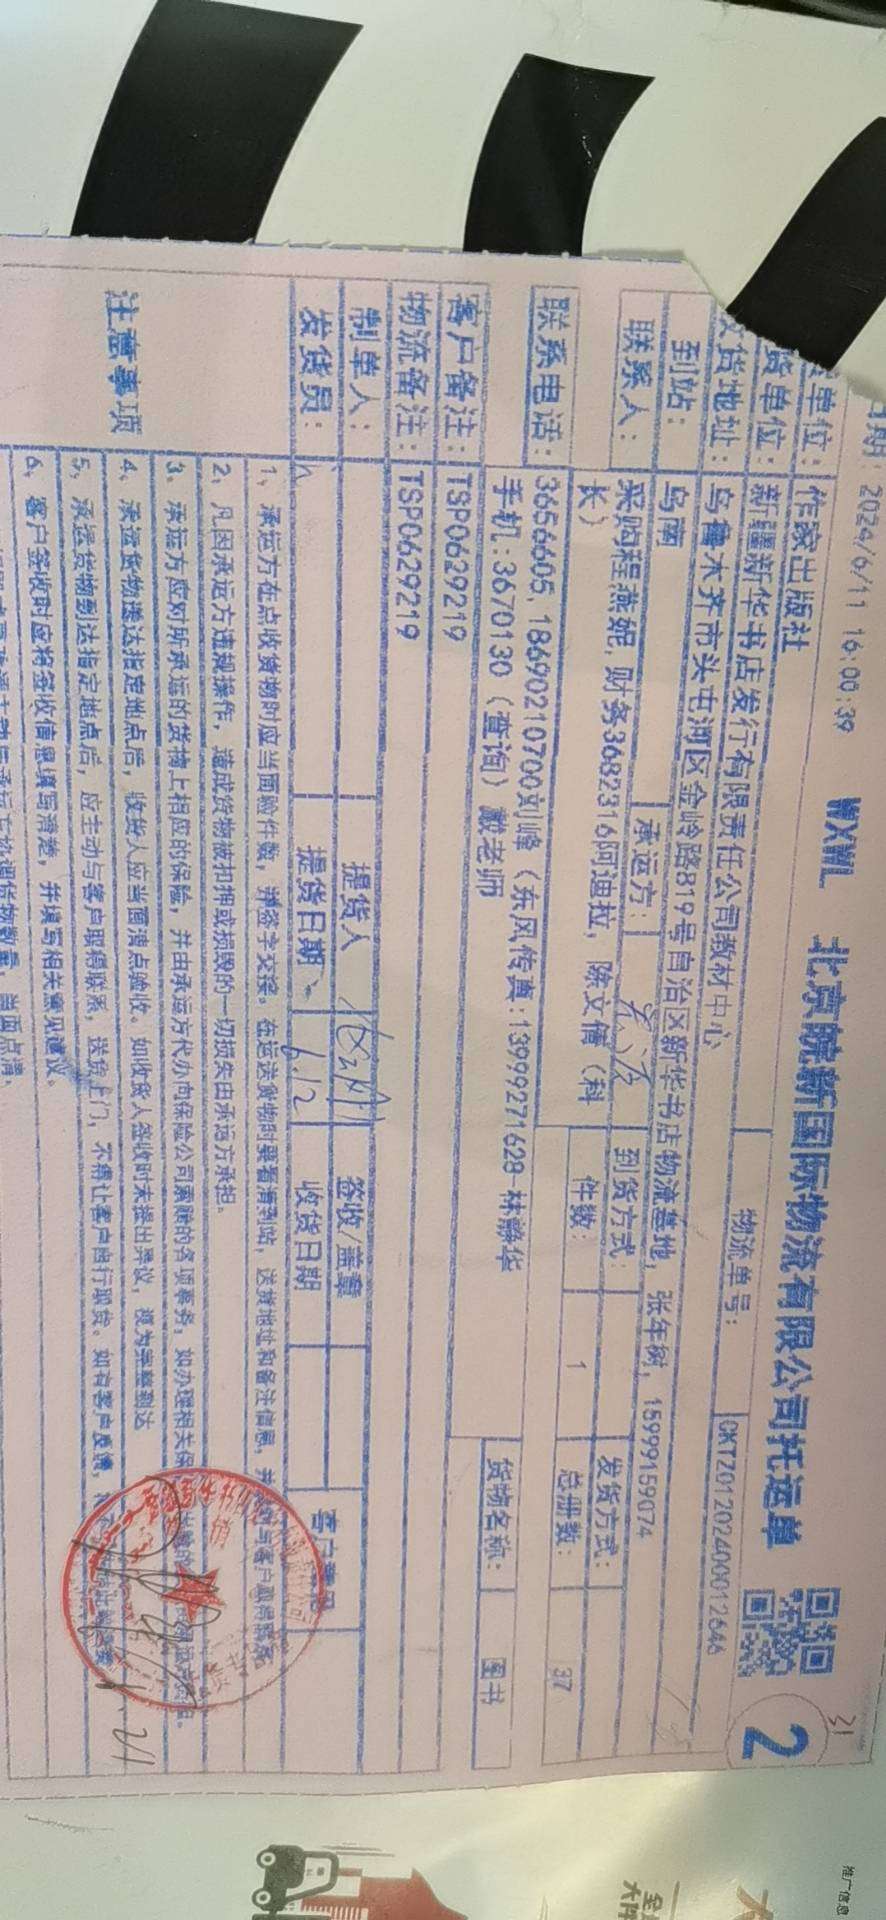 日期: 2024/6/11 16:00:39 WXWL 北京皖新国际物流有限公司托运单
2
31
单位: 作家出版社
货单位: 新疆新华书店发行有限责任公司教材中心 物流单号: CKTZ0120240012646
货地址: 乌鲁木齐市头屯河区金岭路819号自治区新华书店物流基地, 张年树, 15999159074
到站: 乌南 承运方: 到货方式: 发货方式:
联系人: 采购程燕妮, 财务3682316阿迪拉, 陈文倩(科
长) 件数: 1 总册数: 37
联系电话: 3656605, 18690210700刘峰(东风传真:13999271628-林静华
手机:3670130(查询) 戴老师 货物名称: 图书
客户备注: TSP0629219
物流备注: TSP0629219
制单人: 提货人 签收/盖章
发货员: 提货日期 6.12 收货日期
注意事项
1、承运方在点收货物时应当面验件数, 并签字交接。在运送货物时要看清到站, 送货地址和备注信息,
2、凡因承运方违规操作, 造成货物被扣押或损毁的一切损失由承运方承担。
3、承运方应对所承运的货物上相应的保险, 并由承运方代办向保险公司索赔的各项事务, 如办理相关
4、承运货物送达指定地点后, 收货人应当面清点验收。如收货人签收时未提出异议, 视为完整到达
5、承运货物到达指定地点后, 应主动与客户取得联系, 送货上门, 不得让客户自行取货。如有客户反馈,
6、客户签收时应将签收信息填写清楚, 并填写相关意见建议。
推广信息